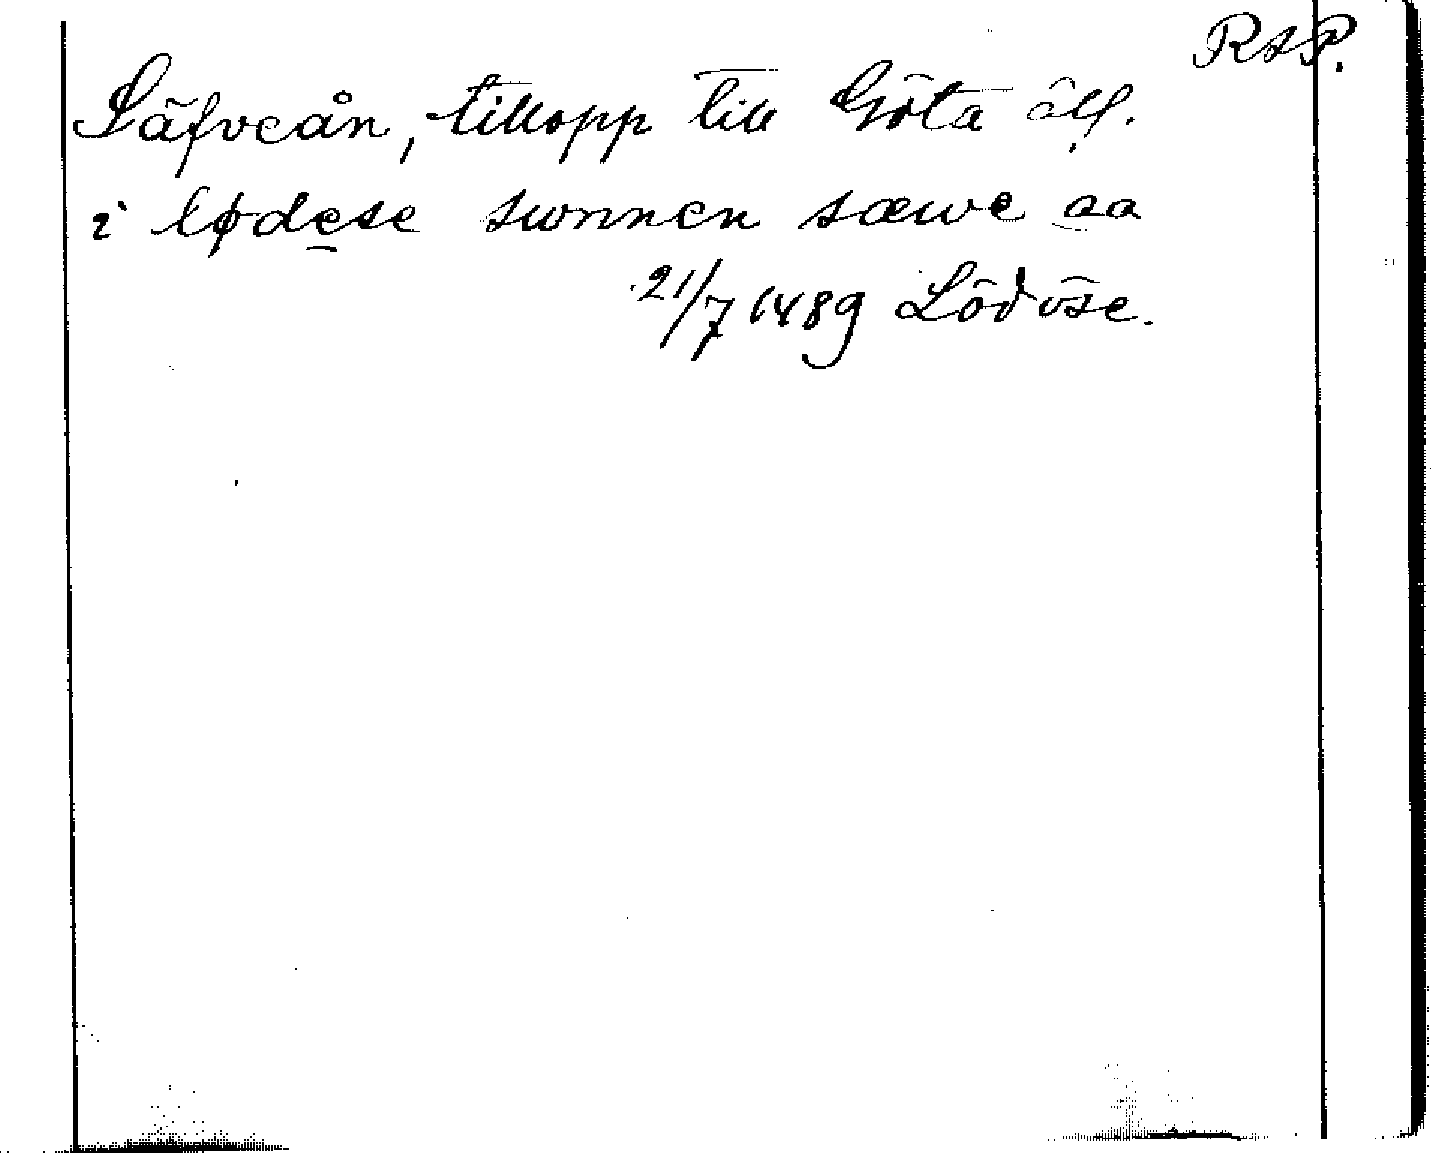 RAP.
Säfveån, tillopp till Göta älf.
i lødese swnnen sæwe aa
21/7 1489 Lödöse.